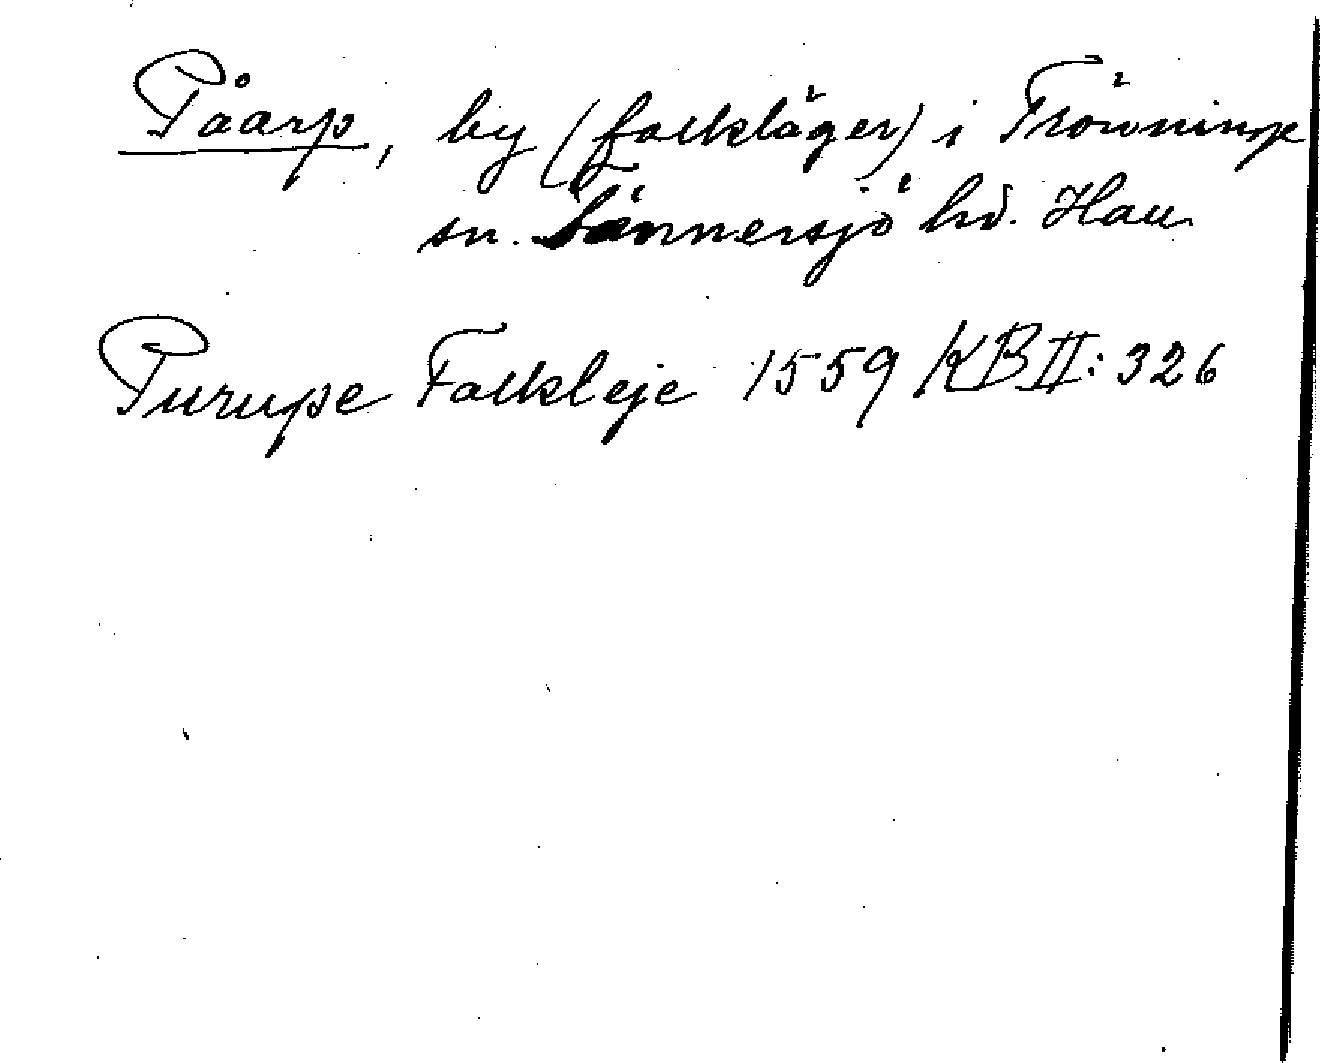 Påarp, by (falkläger) i Trönninge
sn. Tönnersjö hd. Hall.
Purupe Falkleje 1559 KB II: 326